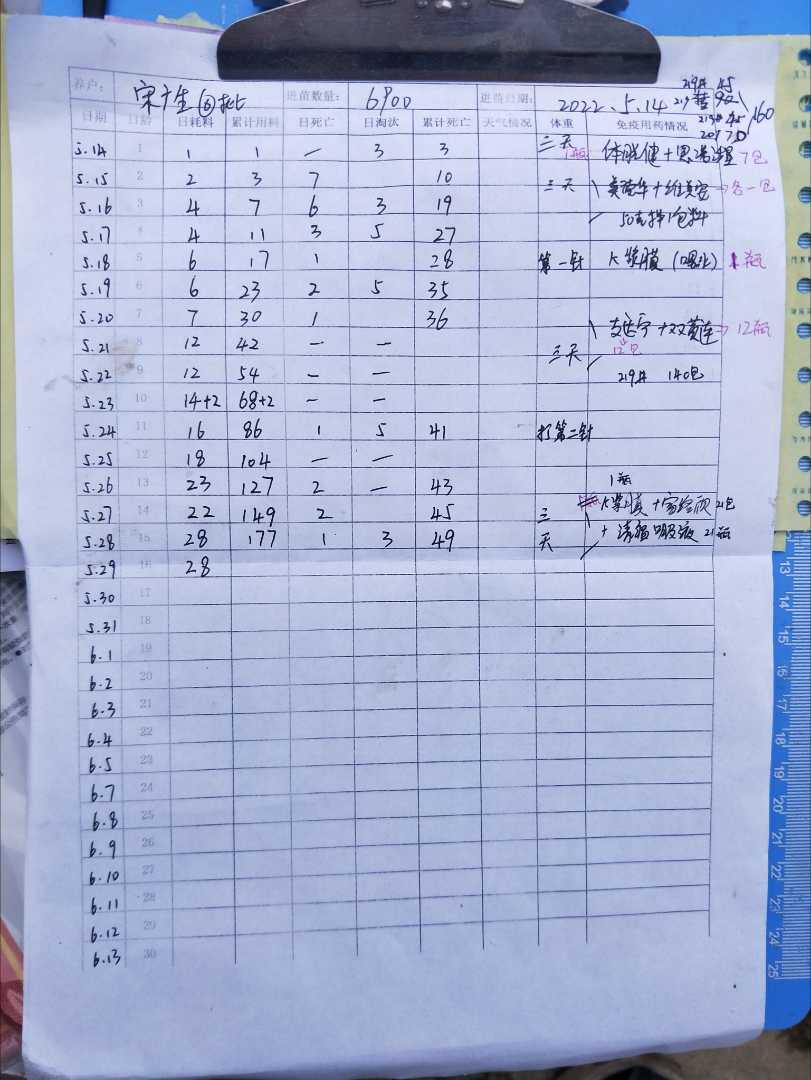 219# 45
养户: 宋 生 ⑥批 进苗数量: 6900 进苗日期: 2022.5.14 219 90 160
213# 45
日期 日龄 日耗料 累计用料 日死亡 日淘汰 累计死亡 天气情况 体重 免疫用药情况
5.14 1 1 1 — 3 3 三天 1瓶 体 健+ 7包
5.15 2 2 3 7 10 三天 +维 → 各一包
5.16 3 4 7 6 3 19 50 拌1包料
5.17 4 4 11 3 5 27
5.18 5 6 17 1 28 第一针 1瓶
5.19 6 6 23 2 5 35
5.20 7 7 30 1 36 支 宁+双黄连 → 12瓶
5.21 8 12 42 — — 三天 12包
5.22 9 12 54 — — 219# 140包
5.23 10 14+2 68+2 — —
5.24 11 16 86 1 5 41 打第二针
5.25 12 18 104 — —
5.26 13 23 127 2 — 43 1瓶
5.27 14 22 149 2 45 三 21包
5.28 15 28 177 1 3 49 天 + 清瘟 液 21瓶
5.29 16 28
5.30 17
5.31 18
6.1 19
6.2 20
6.3 21
6.4 22
6.5 23
6.7 24
6.8 25
6.9 26
6.10 27
6.11 28
6.12 29
6.13 30
13
14
15
16
17
18
19
20
21
22
23
24
25